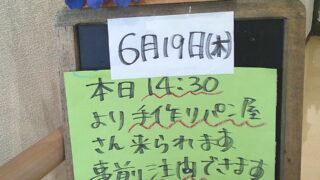 6月19日(木)
本日14:30
より手作りパン屋
さん来られます
事前注内できます